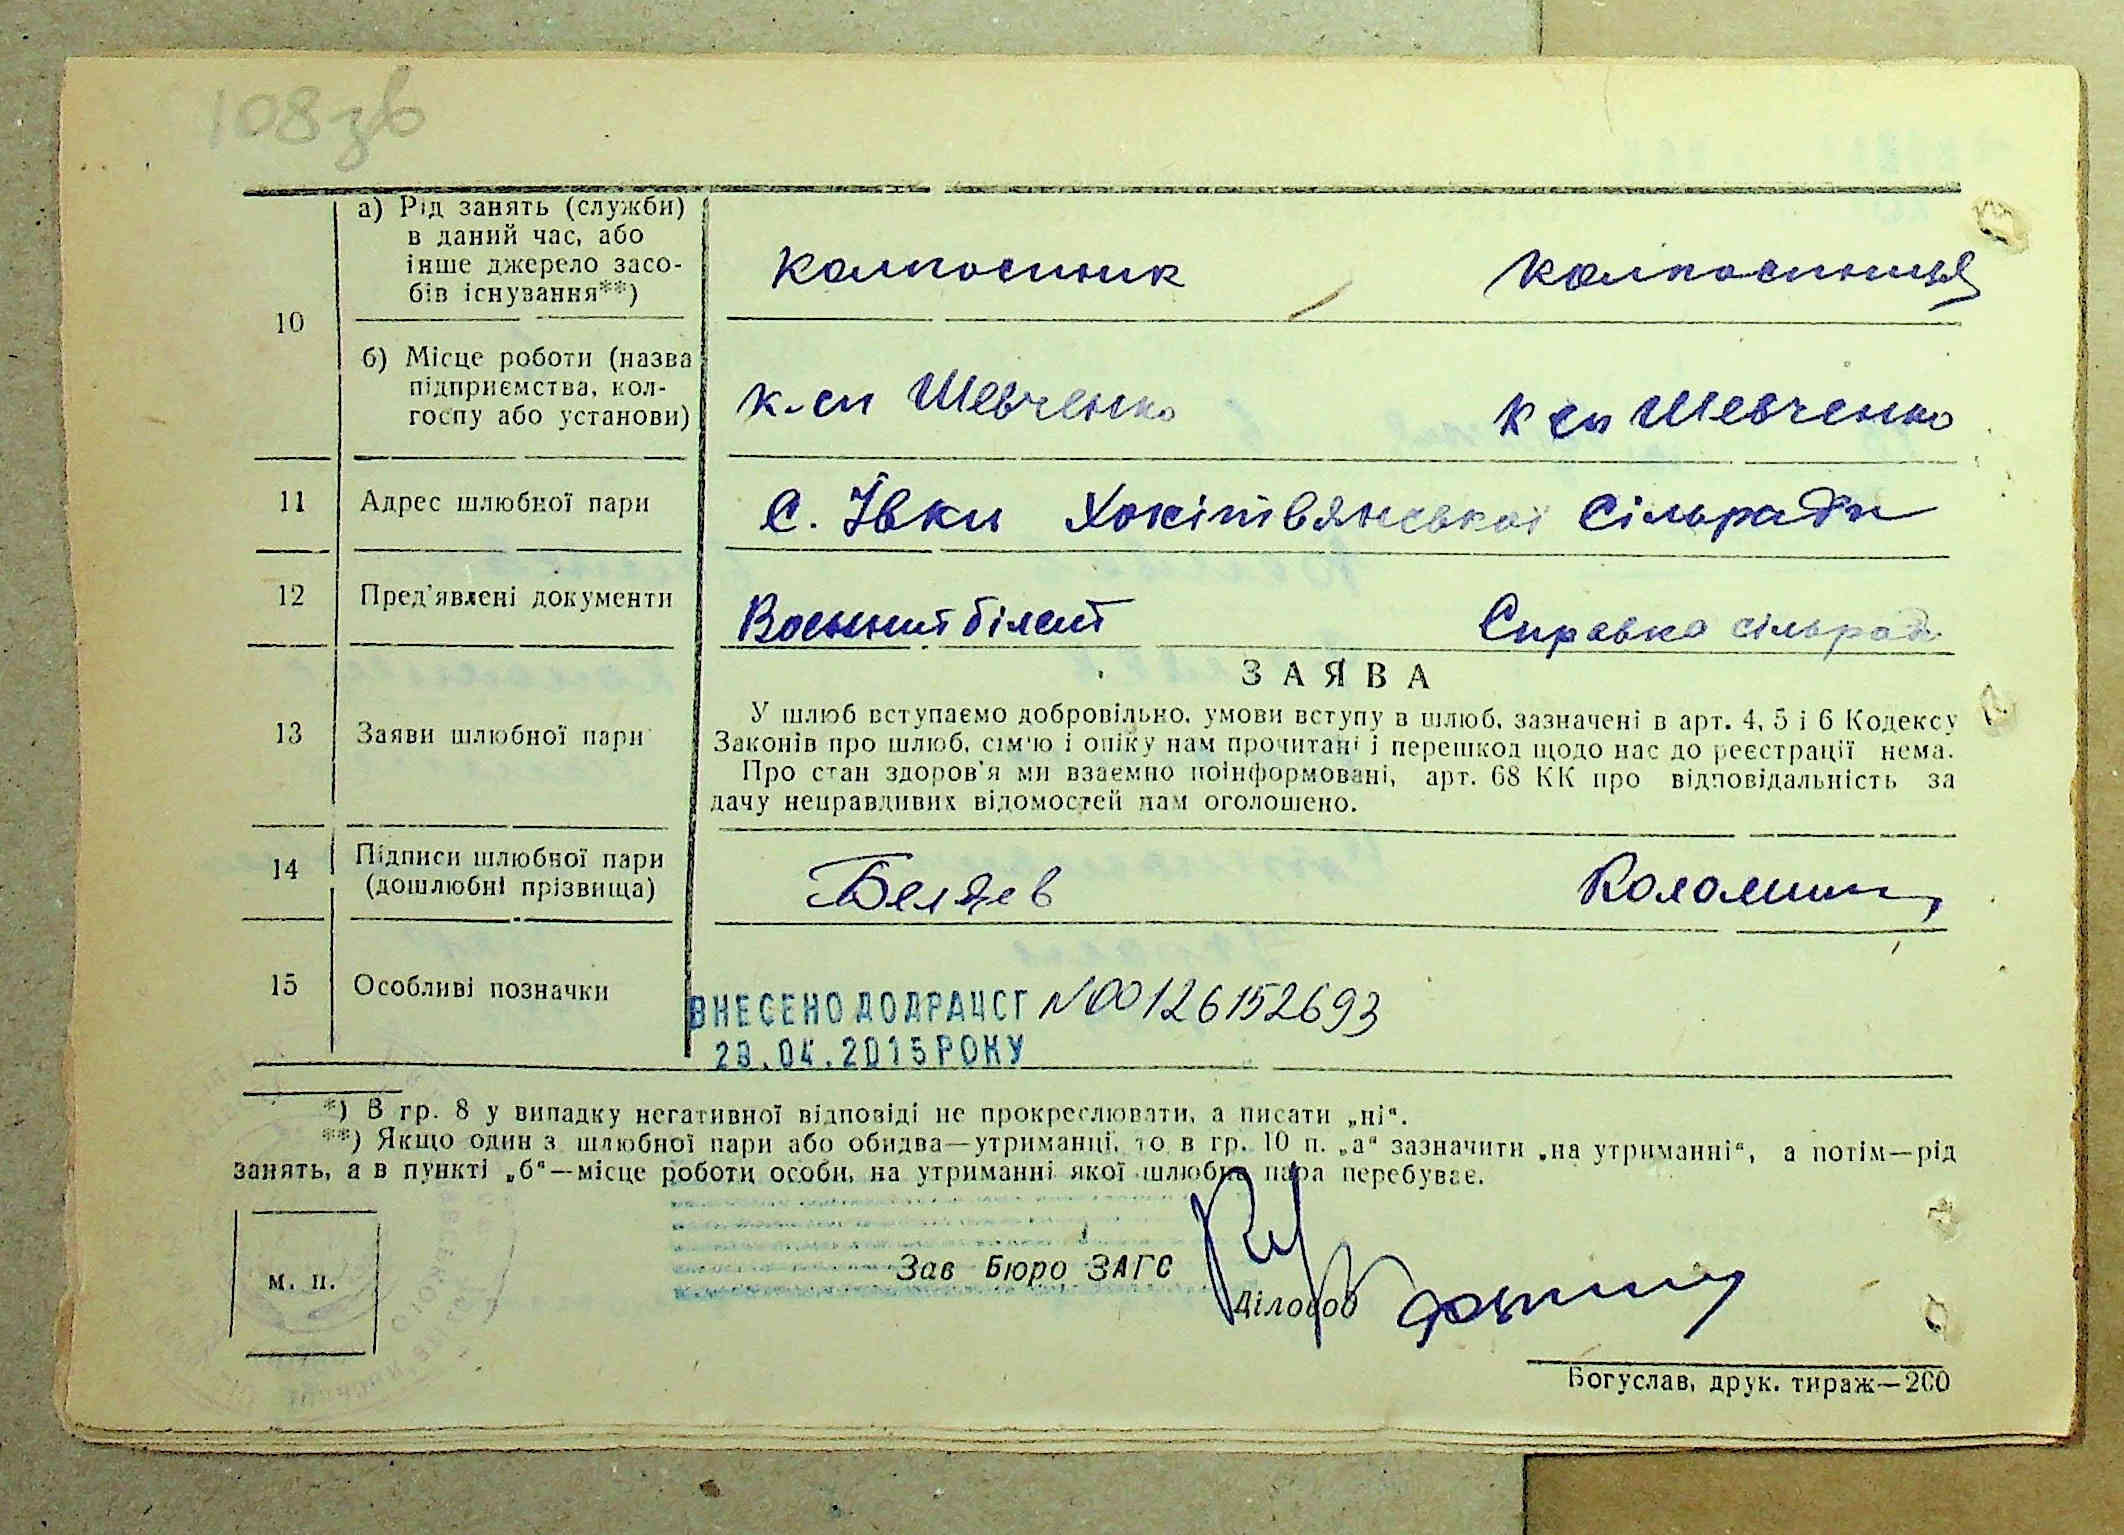 108зв
а) Рід занять (служби)
в даний час, або
інше джерело засо-
бів існування**)
Колгоспник
Колгоспниця
10
б) Місце роботи (назва
підприємства, кол-
госпу або установи)
к-сп Шевченко
к сп Шевченко
11
Адрес шлюбної пари
с. Івки Хохітвянської Сільради
12
Пред'явлені документи
Воєнний білет
Справка сільради
ЗАЯВА
13
Заяви шлюбної пари
У шлюб вступаємо добровільно, умови вступу в шлюб, зазначені в арт. 4, 5 і 6 Кодексу
Законів про шлюб, сім'ю і опіку нам прочитані і перешкод щодо нас до реєстрації нема.
Про стан здоров'я ми взаємно поінформовані, арт. 68 КК про відповідальність за
дачу неправдивих відомостей нам оголошено.
14
Підписи шлюбної пари
(дошлюбні прізвища)
Беляев
15
Особливі позначки
ВНЕСЕНО ДО ДРАЦСГ №00126152693
28.04.2015 РОКУ
*) В гр. 8 у випадку негативної відповіді не прокреслювати, а писати „ні“.
**) Якщо один з шлюбної пари або обидва—утриманці, то в гр. 10 п. „а“ зазначити „на утриманні“, а потім—рід
занять, а в пункті „б“—місце роботи особи, на утриманні якої шлюбна пара перебуває.
м. п.
Зав Бюро ЗАГС
Діловод
Богуслав, друк. тираж—200